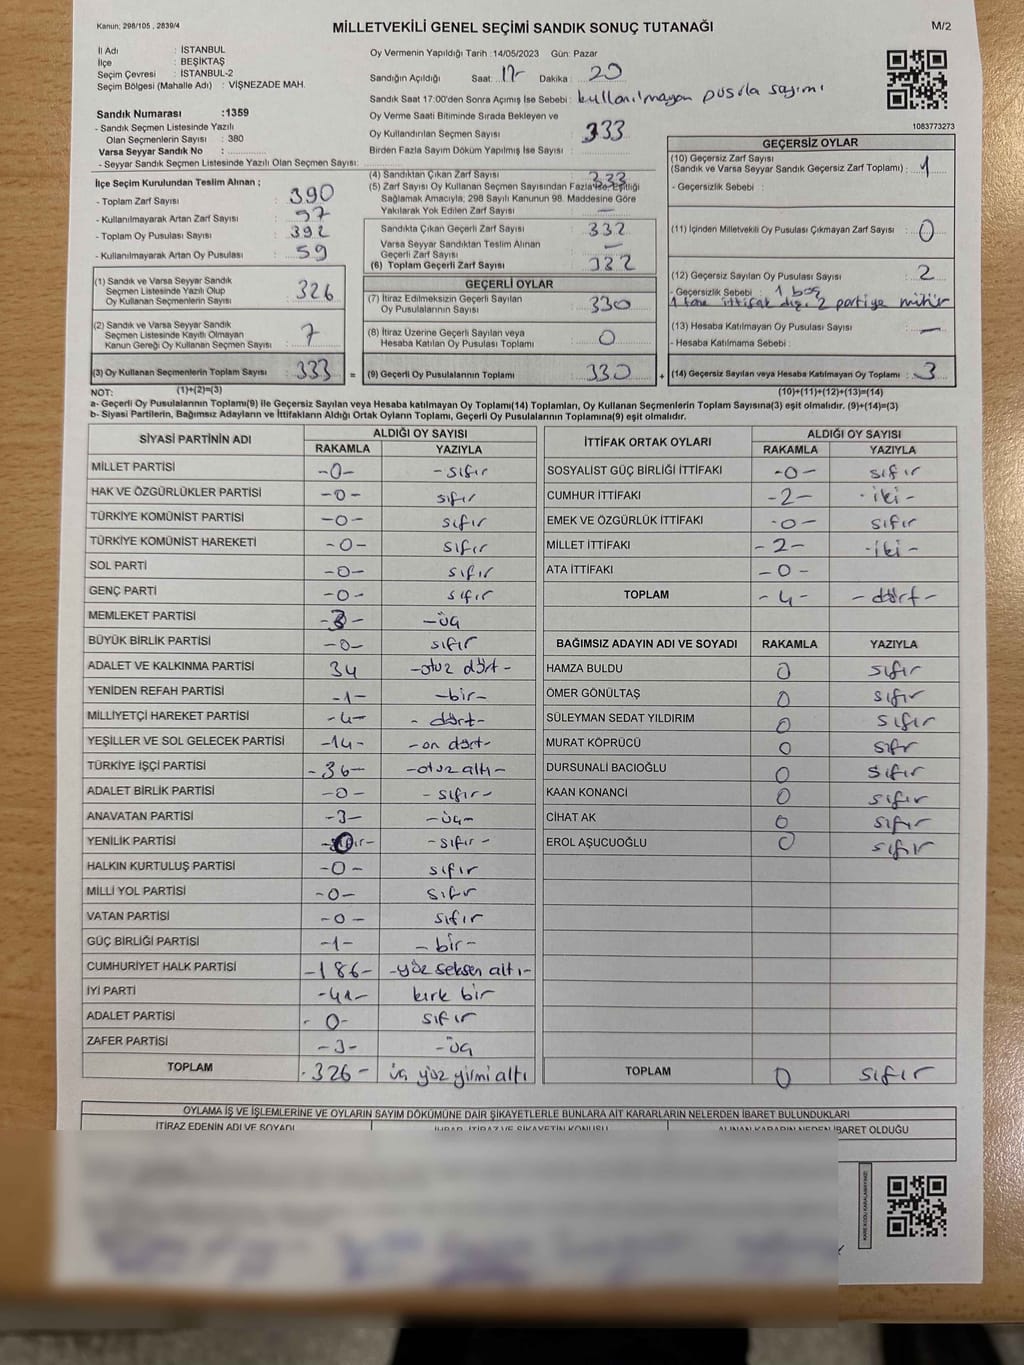 Kanun; 298/105 , 2839/4
MİLLETVEKİLİ GENEL SEÇİMİ SANDIK SONUÇ TUTANAĞI
M/2
İl Adı : İSTANBUL
İlçe : BEŞİKTAŞ
Seçim Çevresi : İSTANBUL-2
Seçim Bölgesi (Mahalle Adı) : VİŞNEZADE MAH.
Sandık Numarası :1359
- Sandık Seçmen Listesinde Yazılı
Olan Seçmenlerin Sayısı : 380
Varsa Seyyar Sandık No :
- Seyyar Sandık Seçmen Listesinde Yazılı Olan Seçmen Sayısı:
Oy Vermenin Yapıldığı Tarih :14/05/2023 Gün: Pazar
Sandığın Açıldığı Saat: 17 Dakika : 20
Sandık Saat 17:00'den Sonra Açımış İse Sebebi : kullanılmayan pusula sayımı
Oy Verme Saati Bitiminde Sırada Bekleyen ve
Oy Kullandırılan Seçmen Sayısı : 333
Birden Fazla Sayım Döküm Yapılmış İse Sayısı :
1083773273
İlçe Seçim Kurulundan Teslim Alınan ;
- Toplam Zarf Sayısı : 390
- Kullanılmayarak Artan Zarf Sayısı : 57
- Toplam Oy Pusulası Sayısı : 392
- Kullanılmayarak Artan Oy Pusulası : 59
(1) Sandık ve Varsa Seyyar Sandık
Seçmen Listesinde Yazılı Olup
Oy Kullanan Seçmenlerin Sayısı : 326
(2) Sandık ve Varsa Seyyar Sandık
Seçmen Listesinde Kayıtlı Olmayan
Kanun Gereği Oy Kullanan Seçmen Sayısı : 7
(3) Oy Kullanan Seçmenlerin Toplam Sayısı : 333 =
(4) Sandıktan Çıkan Zarf Sayısı : 333
(5) Zarf Sayısı Oy Kullanan Seçmen Sayısından Fazla İse, Eşitliği
Sağlamak Amacıyla; 298 Sayılı Kanunun 98. Maddesine Göre
Yakılarak Yok Edilen Zarf Sayısı : —
Sandıkta Çıkan Geçerli Zarf Sayısı : 332
Varsa Seyyar Sandıktan Teslim Alınan
Geçerli Zarf Sayısı : —
(6) Toplam Geçerli Zarf Sayısı : 332
GEÇERLİ OYLAR
(7) İtiraz Edilmeksizin Geçerli Sayılan
Oy Pusulalarının Sayısı : 330
(8) İtiraz Üzerine Geçerli Sayılan veya
Hesaba Katılan Oy Pusulası Toplamı : 0
(9) Geçerli Oy Pusulalarının Toplamı : 330 +
GEÇERSİZ OYLAR
(10) Geçersiz Zarf Sayısı
(Sandık ve Varsa Seyyar Sandık Geçersiz Zarf Toplamı) : 1
- Geçersizlik Sebebi :
(11) İçinden Milletvekili Oy Pusulası Çıkmayan Zarf Sayısı : 0
(12) Geçersiz Sayılan Oy Pusulası Sayısı : 2
- Geçersizlik Sebebi : 1 boş
1 tane ittifak dışı 2 partiye mühür
(13) Hesaba Katılmayan Oy Pusulası Sayısı : —
- Hesaba Katılmama Sebebi :
(14) Geçersiz Sayılan veya Hesaba Katılmayan Oy Toplamı : 3
NOT: (1)+(2)=(3)
(10)+(11)+(12)+(13)=(14)
a- Geçerli Oy Pusulalarının Toplamı(9) ile Geçersiz Sayılan veya Hesaba katılmayan Oy Toplamı(14) Toplamları, Oy Kullanan Seçmenlerin Toplam Sayısına(3) eşit olmalıdır. (9)+(14)=(3)
b- Siyasi Partilerin, Bağımsız Adayların ve İttifakların Aldığı Ortak Oyların Toplamı, Geçerli Oy Pusulalarının Toplamına(9) eşit olmalıdır.
SİYASİ PARTİNİN ADI ALDIĞI OY SAYISI
RAKAMLA YAZIYLA
MİLLET PARTİSİ -0- -sıfır
HAK VE ÖZGÜRLÜKLER PARTİSİ -0- sıfır
TÜRKİYE KOMÜNİST PARTİSİ -0- sıfır
TÜRKİYE KOMÜNİST HAREKETİ -0- sıfır
SOL PARTİ -0- sıfır
GENÇ PARTİ -0- sıfır
MEMLEKET PARTİSİ -3- -üç
BÜYÜK BİRLİK PARTİSİ -0- sıfır
ADALET VE KALKINMA PARTİSİ 34 -otuz dört-
YENİDEN REFAH PARTİSİ -1- -bir-
MİLLİYETÇİ HAREKET PARTİSİ -4- -dört-
YEŞİLLER VE SOL GELECEK PARTİSİ -14- -on dört-
TÜRKİYE İŞÇİ PARTİSİ -36- -otuz altı-
ADALET BİRLİK PARTİSİ -0- -sıfır-
ANAVATAN PARTİSİ -3- -üç-
YENİLİK PARTİSİ 0 -sıfır-
HALKIN KURTULUŞ PARTİSİ -0- sıfır
MİLLİ YOL PARTİSİ -0- sıfır
VATAN PARTİSİ -0- sıfır
GÜÇ BİRLİĞİ PARTİSİ -1- -bir-
CUMHURİYET HALK PARTİSİ -186- -yüz seksen altı-
İYİ PARTİ -41- kırk bir
ADALET PARTİSİ -0- sıfır
ZAFER PARTİSİ -3- -üç
TOPLAM -326- üç yüz yirmi altı
İTTİFAK ORTAK OYLARI ALDIĞI OY SAYISI
RAKAMLA YAZIYLA
SOSYALİST GÜÇ BİRLİĞİ İTTİFAKI -0- sıfır
CUMHUR İTTİFAKI -2- -iki-
EMEK VE ÖZGÜRLÜK İTTİFAKI -0- sıfır
MİLLET İTTİFAKI -2- -iki-
ATA İTTİFAKI -0-
TOPLAM -4- -dört-
BAĞIMSIZ ADAYIN ADI VE SOYADI RAKAMLA YAZIYLA
HAMZA BULDU 0 sıfır
ÖMER GÖNÜLTAŞ 0 sıfır
SÜLEYMAN SEDAT YILDIRIM 0 sıfır
MURAT KÖPRÜCÜ 0 sıfr
DURSUNALİ BACIOĞLU 0 sıfır
KAAN KONANCİ 0 sıfır
CİHAT AK 0 sıfır
EROL AŞUCUOĞLU 0 sıfır
TOPLAM 0 sıfır
OYLAMA İŞ VE İŞLEMLERİNE VE OYLARIN SAYIM DÖKÜMÜNE DAİR ŞİKAYETLERLE BUNLARA AİT KARARLARIN NELERDEN İBARET BULUNDUKLARI
İTİRAZ EDENİN ADI VE SOYADI İHBAR, İTİRAZ VE ŞİKAYETİN KONUSU ALINAN KARARIN NEDEN İBARET OLDUĞU
KARE KODU KARALAMAYINIZ!